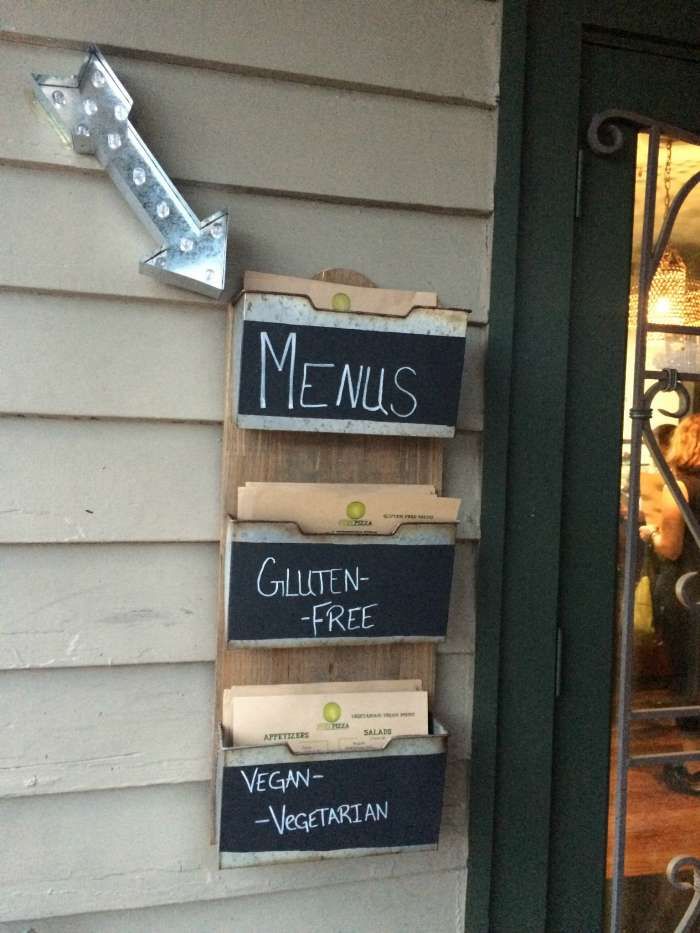 MENUS
PIZZA
GLUTEN FREE MENU
GLUTEN-
-FREE
PIZZA
VEGETARIAN/VEGAN MENU
APPETIZERS
SALADS
VEGAN-
-VEGETARIAN